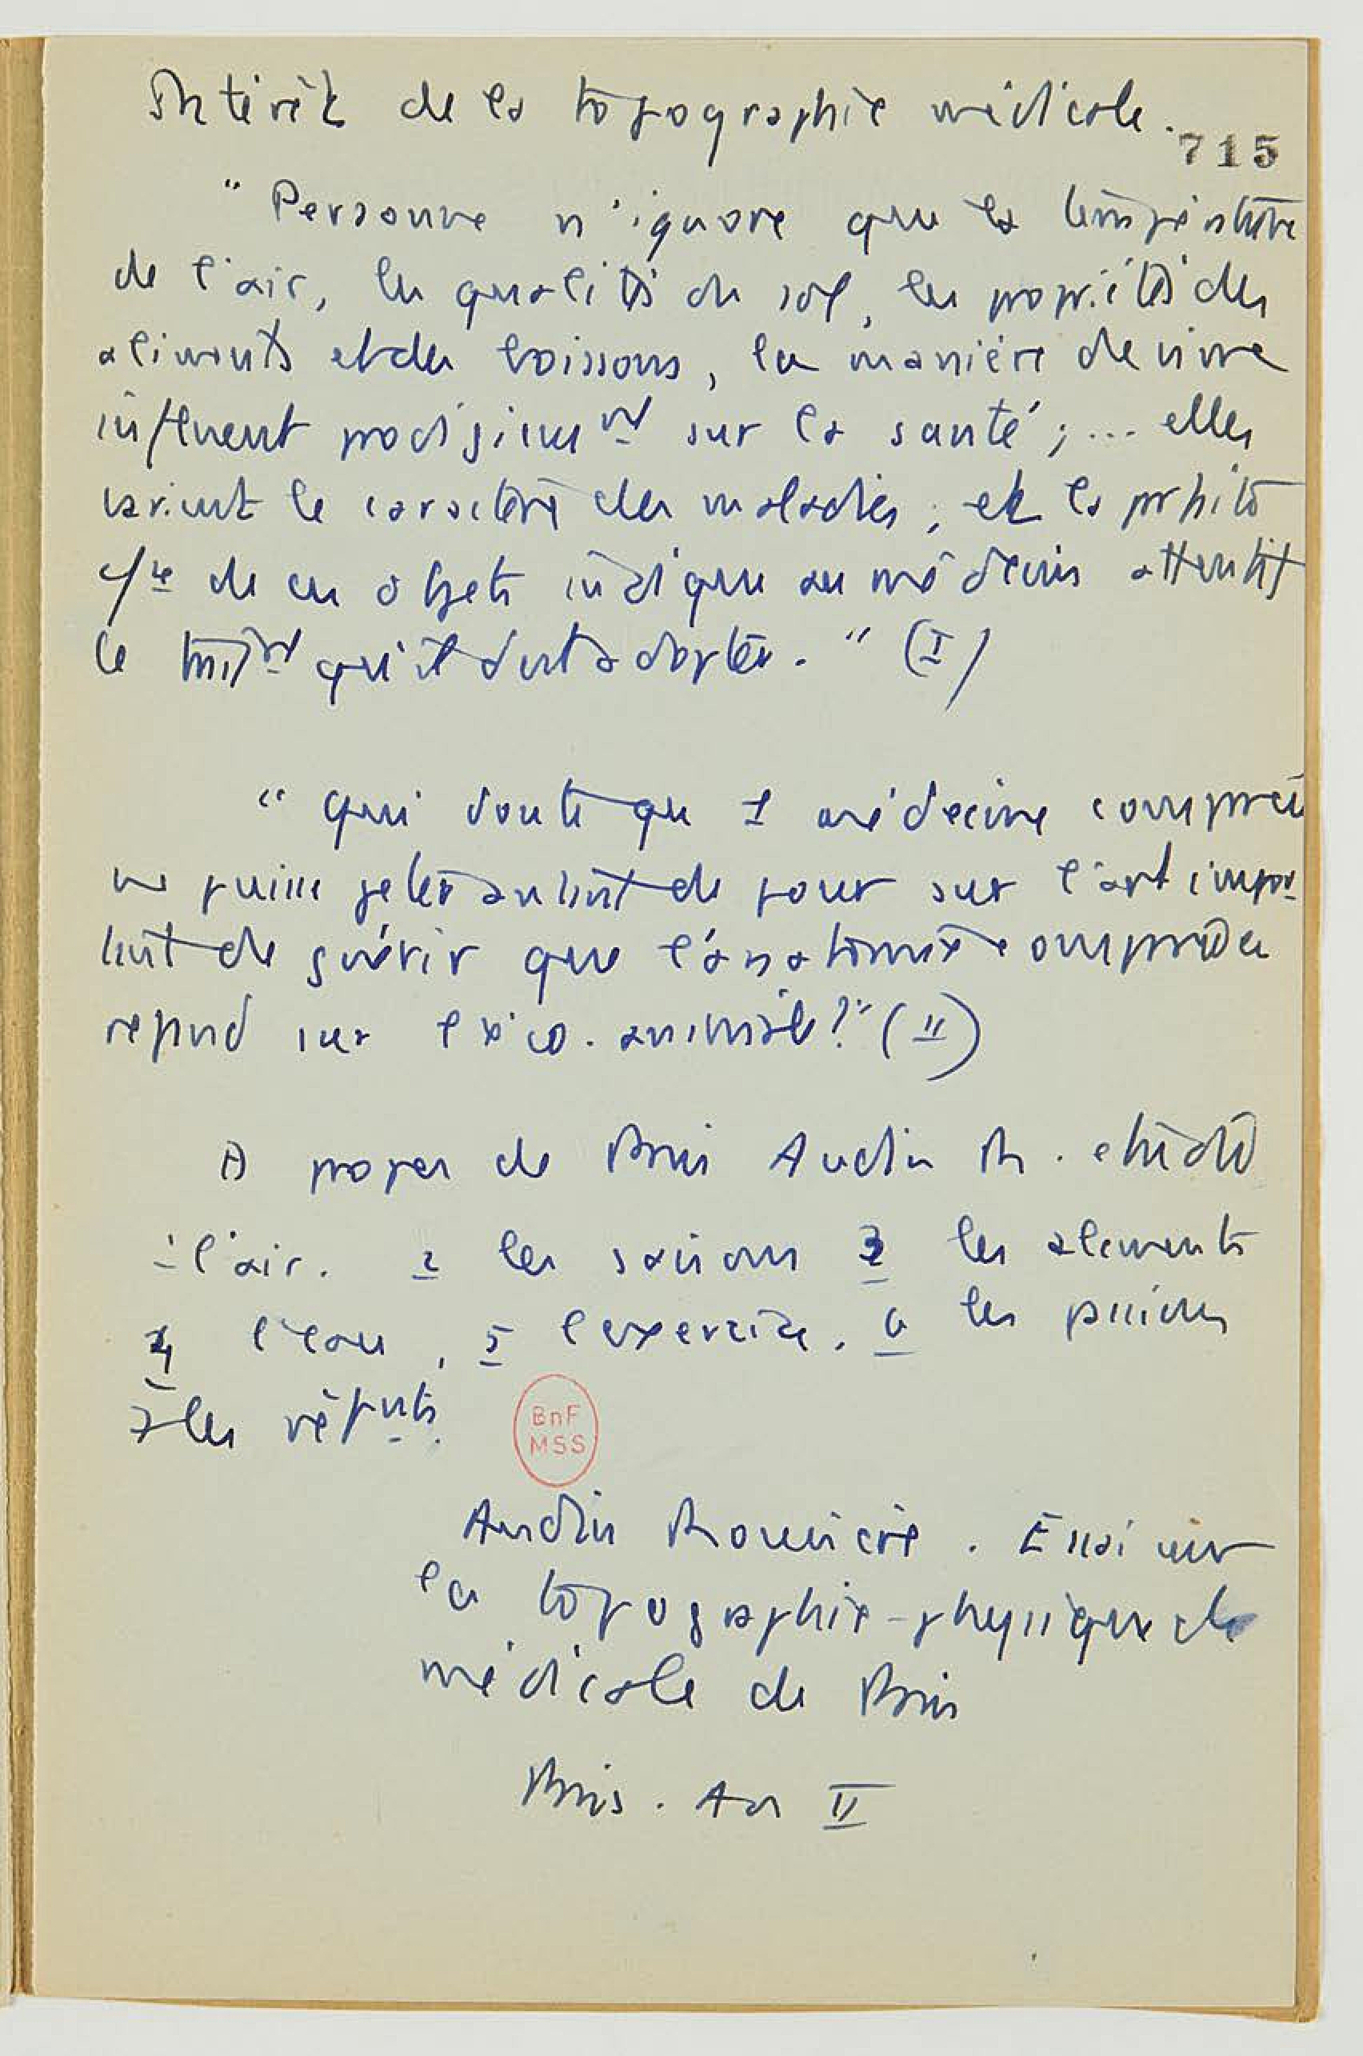 Intérêt de la topographie médicale.
715
"Personne n'ignore que la température
de l'air, les qualités du sol, les propriétés des
aliments et des boissons, la manière de vivre
influent prodigieusnt sur la santé ; ... elles
varient le caractère des maladies ; et la
de ces objets indique au médecin attentif
le qu'il doit adopter." (I)
"Qui doute que 1 médecine comparée
ne puisse jeter autant de jour sur l'art impor
tant de guérir que l'anatomie comparée
répand sur l'éco. animale ?" (II)
A propos de Paris Audin R. étudie
1 l'air. 2 les saisons 3 les aliments
4 l'eau, 5 l'exercice. 6 les passions
7 les vêtmnts.
BnF
MSS
Audin Rouvière. Essai sur
la topographie-physique et
médicale de Paris
Paris. An II